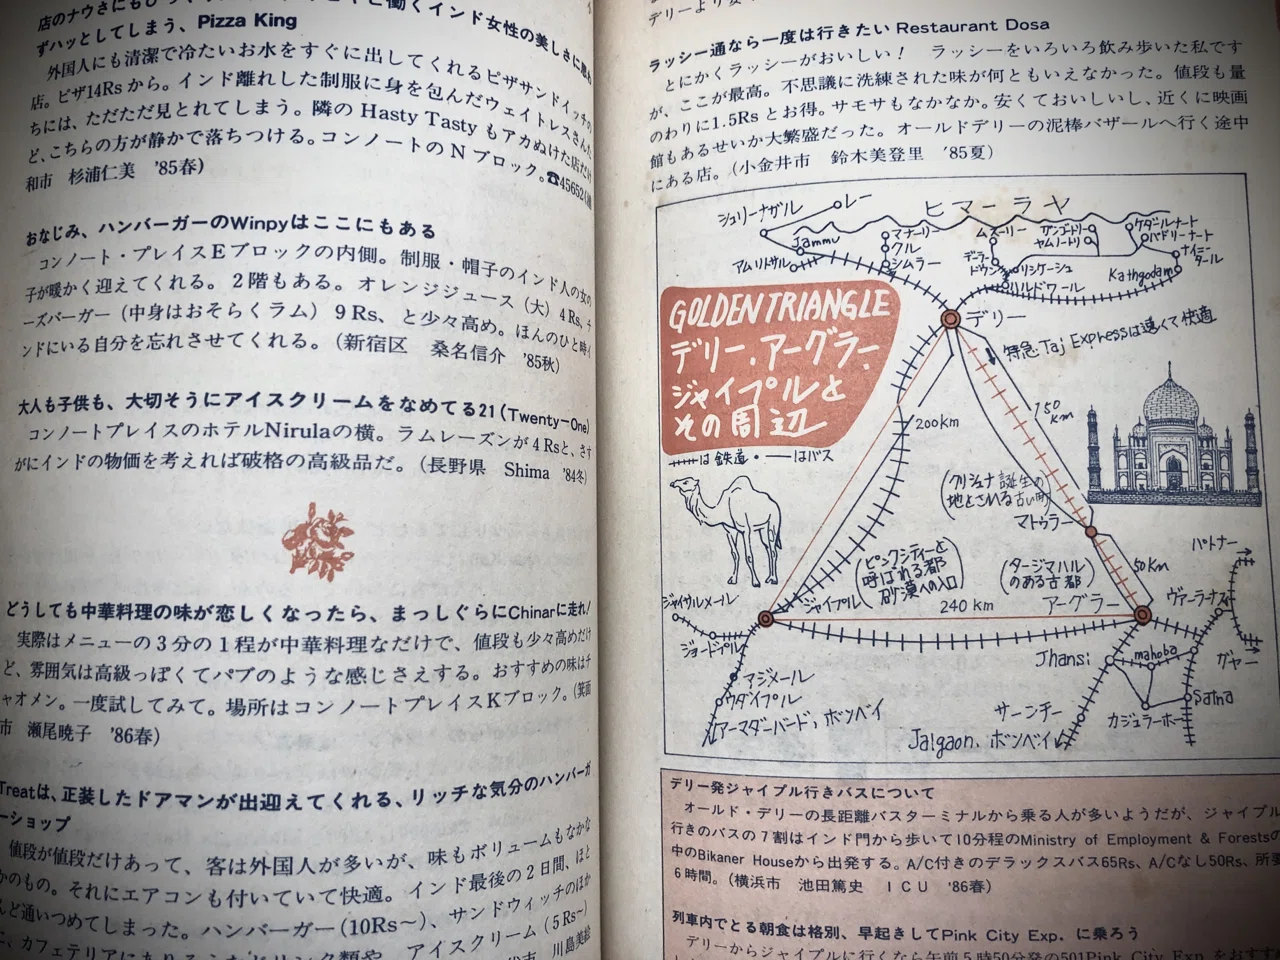 店のナウさにもびっくり
働くインド女性の美しさに思わ
ずハッとしてしまう、Pizza King
外国人にも清潔で冷たいお水をすぐに出してくれるピザサンドイッチの
店。ピザ14Rsから。インド離れした制服に身を包んだウェイトレスさんた
ちには、ただただ見とれてしまう。隣の Hasty Tasty もアカぬけた店だけ
ど、こちらの方が静かで落ちつける。コンノートの N ブロック。☎45652
和市 杉浦仁美 '85春)
おなじみ、ハンバーガーのWinpyはここにもある
コンノート・プレイスEブロックの内側。制服・帽子のインド人の女の
子が暖かく迎えてくれる。2階もある。オレンジジュース（大）4Rs、チ
ーズバーガー（中身はおそらくラム）9Rs、と少々高め。ほんのひと時イ
ンドにいる自分を忘れさせてくれる。（新宿区 桑名信介 '85秋）
大人も子供も、大切そうにアイスクリームをなめてる21（Twenty-One）
コンノートプレイスのホテルNirulaの横。ラムレーズンが4Rsと、さす
がにインドの物価を考えれば破格の高級品だ。（長野県 Shima '84冬）
どうしても中華料理の味が恋しくなったら、まっしぐらにChinarに走れ！
実際はメニューの3分の1程が中華料理なだけで、値段も少々高めだけ
ど、雰囲気は高級っぽくてパブのような感じさえする。おすすめの味はチ
ャオメン。一度試してみて。場所はコンノートプレイスKブロック。（箕面
市 瀬尾暁子 '86春）
Treatは、正装したドアマンが出迎えてくれる、リッチな気分のハンバーガ
ーショップ
値段が値段だけあって、客は外国人が多いが、味もボリュームもなかな
かのもの。それにエアコンも付いていて快適。インド最後の2日間、ほと
んど通いつめてしまった。ハンバーガー（10Rs〜）、サンドウィッチのほか
に、カフェテリアにあるドリンク類や、アイスクリーム（5Rs〜）
川島美絵
デリーより
ラッシー通なら一度は行きたい Restaurant Dosa
とにかくラッシーがおいしい！ ラッシーをいろいろ飲み歩いた私です
が、ここが最高。不思議に洗練された味が何ともいえなかった。値段も量
のわりに1.5Rsとお得。サモサもなかなか。安くておいしいし、近くに映画
館もあるせいか大繁盛だった。オールドデリーの泥棒バザールへ行く途中
にある店。（小金井市 鈴木美登里 '85夏）
シュリーナガル
レー
ヒマーラヤ
Jammu
アムリトサル
マナーリー
クル
シムラー
ムスーリー
ガンゴートリー
ヤムノートリー
ケダールナート
バドリーナート
デーラードゥン
リシケーシュ
ハルドワール
ナイニタール
Kathgodam
GOLDEN TRIANGLE
デリー、アーグラー、
ジャイプルと
その周辺
は鉄道・—はバス
デリー
特急Taj Expressは速くて快適
200km
150km
（クリシュナ誕生の
地とされる古い町）
マトゥラー
（ピンクシティーと
呼ばれる都
砂漠への入口）
ジャイプル
（タージマハル
のある古都）
アーグラー
50Km
240km
パトナー
ヴァーラナスィ
ガヤー
ジャイサルメール
ジョードプル
アジメール
ウダイプル
アーマダーバード、ボンベイ
Jhansi
mahoba
Satna
カジュラーホー
サーンチー
Jalgaon、ボンベイ
デリー発ジャイプル行きバスについて
オールド・デリーの長距離バスターミナルから乗る人が多いようだが、ジャイプル
行きのバスの7割はインド門から歩いて10分程のMinistry of Employment & Forestsの
中のBikaner Houseから出発する。A/C付きのデラックスバス65Rs、A/Cなし50Rs、所要
6時間。（横浜市 池田篤史 ICU '86春）
列車内でとる朝食は格別、早起きしてPink City Exp. に乗ろう
デリーからジャイプルに行くなら午前5時50分発の501Pink City Exp.をおすす